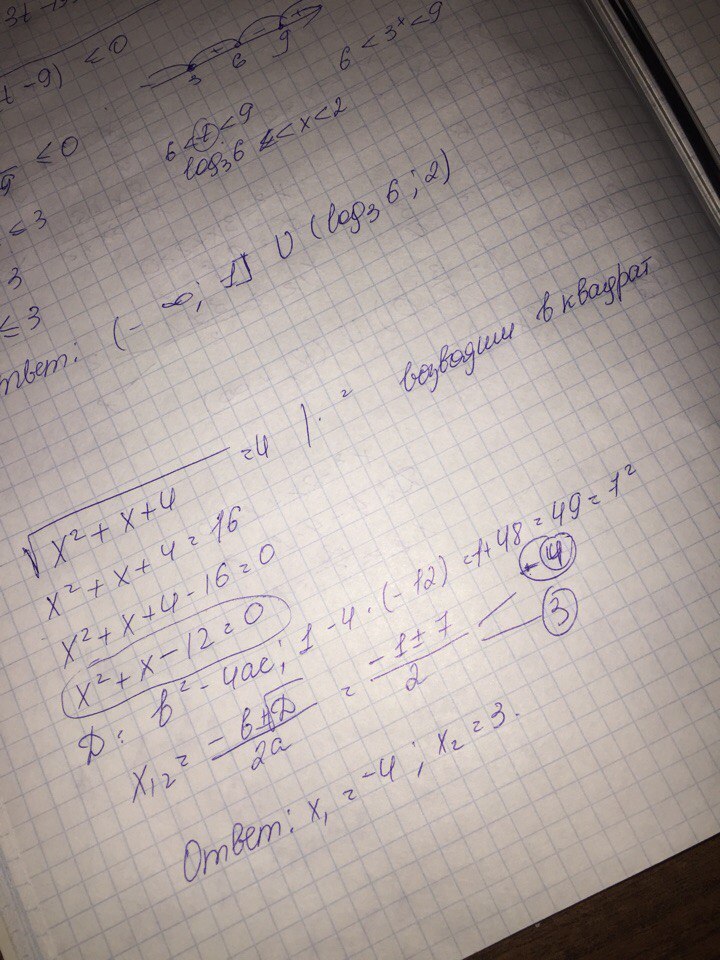 3t
t-9) < 0
3 6 9
6 < 3ˣ < 9
9 ≤ 0
6 < t < 9
log₃6 < x < 2
≤ 3
3
≤ 3
твет: (-∞; 1] ∪ (log₃6; 2)
√x²+x+4 = 4 |·² возводим в квадрат
x²+x+4=16
x²+x+4-16=0
x²+x-12=0
D: b²-4ac; 1-4·(-12)=1+48=49=1²
x₁,₂ = (-b±√D)/2a = (-1±7)/2 -4 3
Ответ: x₁=-4; x₂=3.